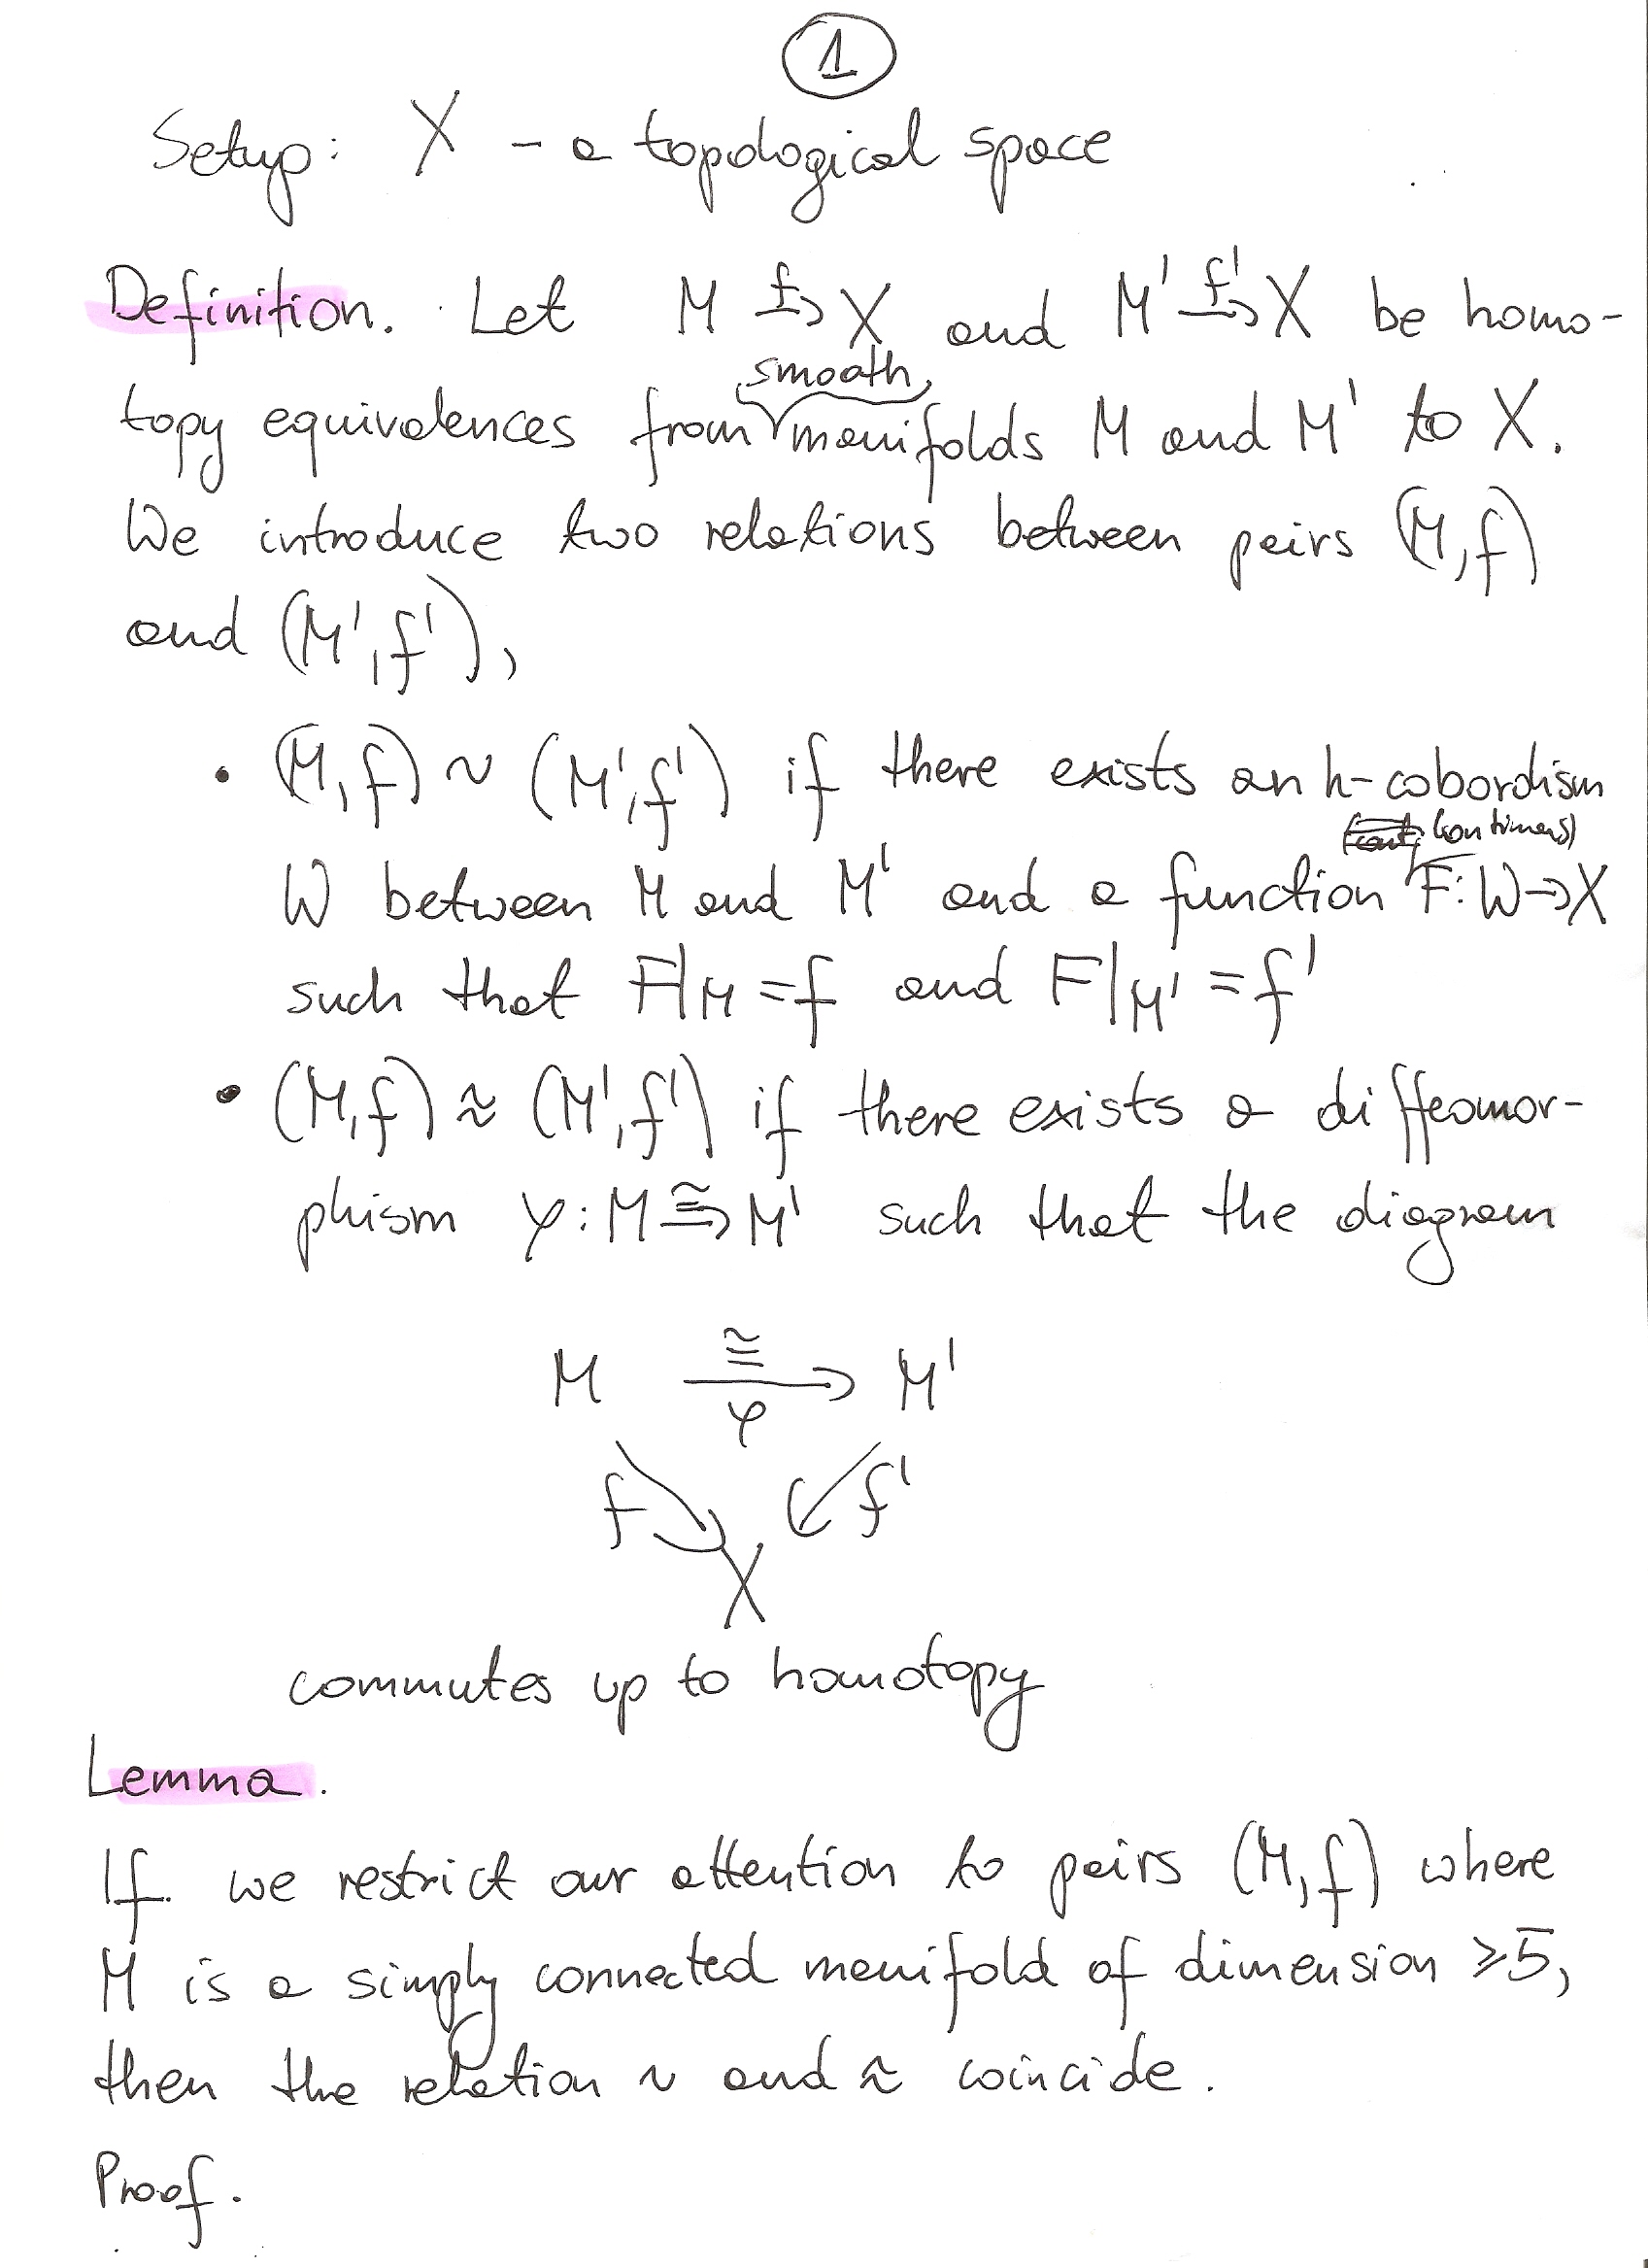 1
Setup: X - a topological space
Definition. Let M →f X and M' →f' X be homo-
smooth
topy equivalences from manifolds M and M' to X.
We introduce two relations between pairs (M,f)
and (M',f'),
• (M,f) ~ (M',f') if there exists an h-cobordism
(continuous)
W between M and M' and a function F: W→X
such that F|M = f and F|M' = f'
• (M,f) ≈ (M',f') if there exists a diffeomor-
phism φ: M ≅→ M' such that the diagram
M ≅→φ M'
f f'
X
commutes up to homotopy
Lemma.
If we restrict our attention to pairs (M,f) where
M is a simply connected manifold of dimension ⩾5,
then the relation ~ and ≈ coincide.
Proof.